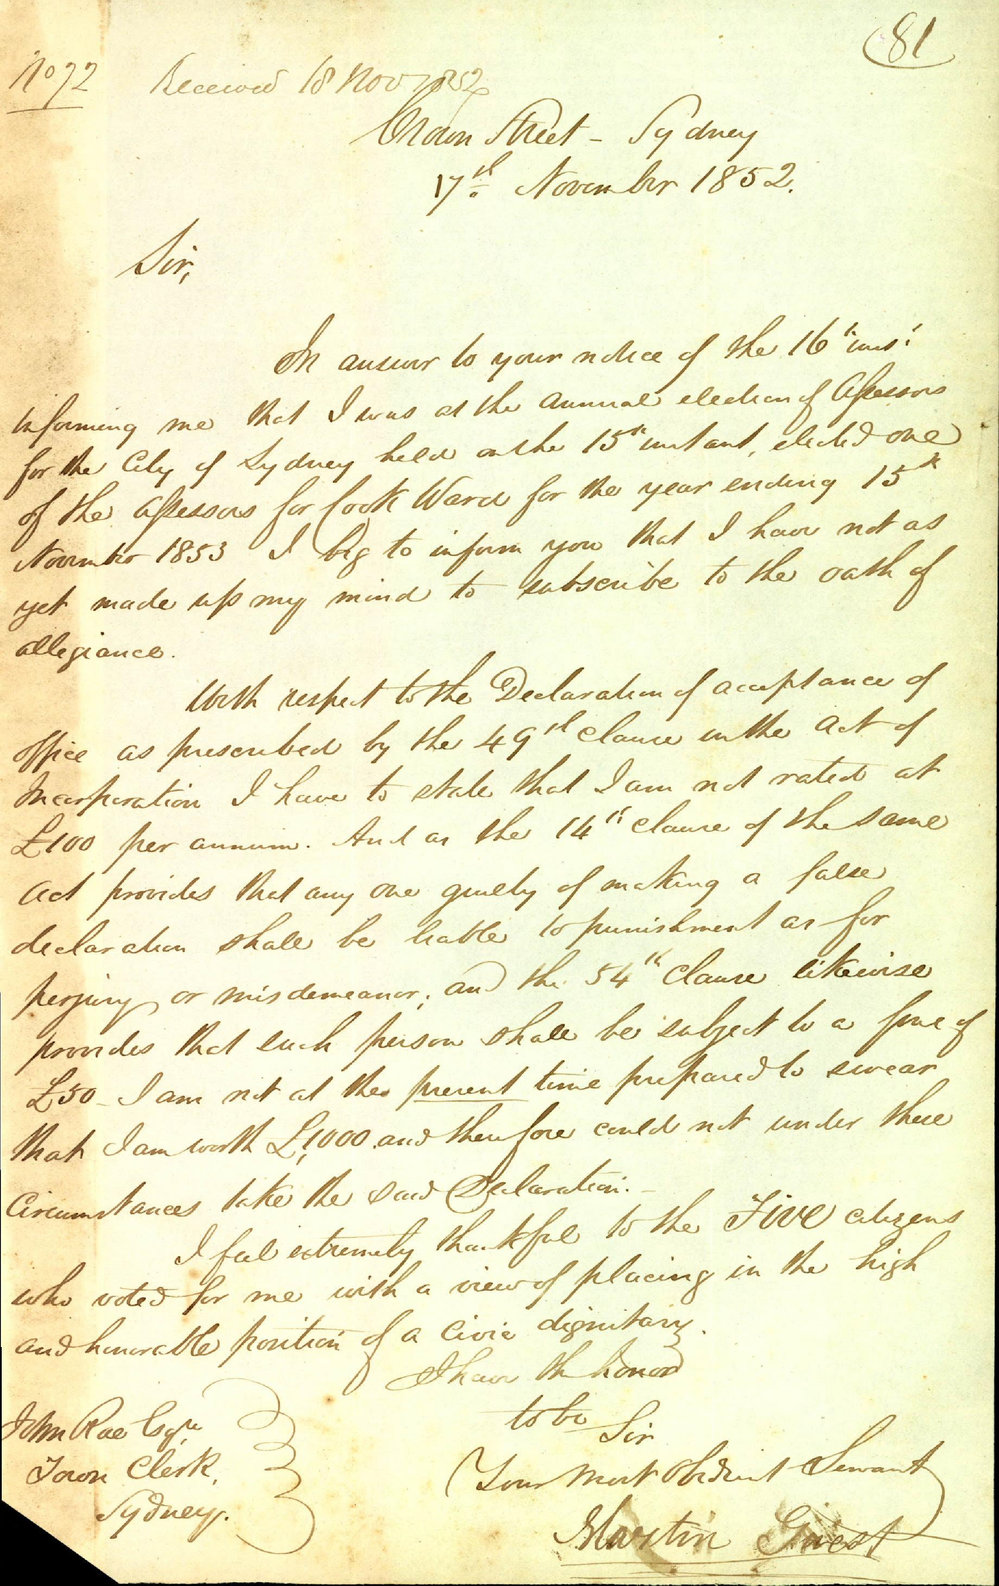 81
No 72 Received 18 Nov 1852
Crown Street - Sydney
17th November 1852.
Sir,
In answer to your notice of the 16th inst
informing me that I was at the annual election of Assessors
for the City of Sydney held on the 15th instant, elected one
of the Assessors for Cook Ward for the year ending 15th
November 1853 I beg to inform you that I have not as
yet made up my mind to subscribe to the oath of
allegiance.
With respect to the Declaration of acceptance of
office as prescribed by the 49th Clause in the Act of
Incorporation I have to state that I am not rated at
£100 per annum. And as the 14th Clause of the same
Act provides that any one guilty of making a false
declaration shall be liable to punishment as for
perjury or misdemeanor; and the 54th Clause likewise
provides that such person shall be subject to a fine of
£50 - I am not at the present time prepared to swear
that I am worth £1,000 and therefore could not under these
Circumstances take the said Declaration. -
I feel extremely thankful to the Five citizens
who voted for me with a view of placing in the high
and honorable position of a Civic dignitary.
I have the honor
to be
Sir
Your most obedient Servant
Martin Guest
John Rae Esqre
Town Clerk,
Sydney.